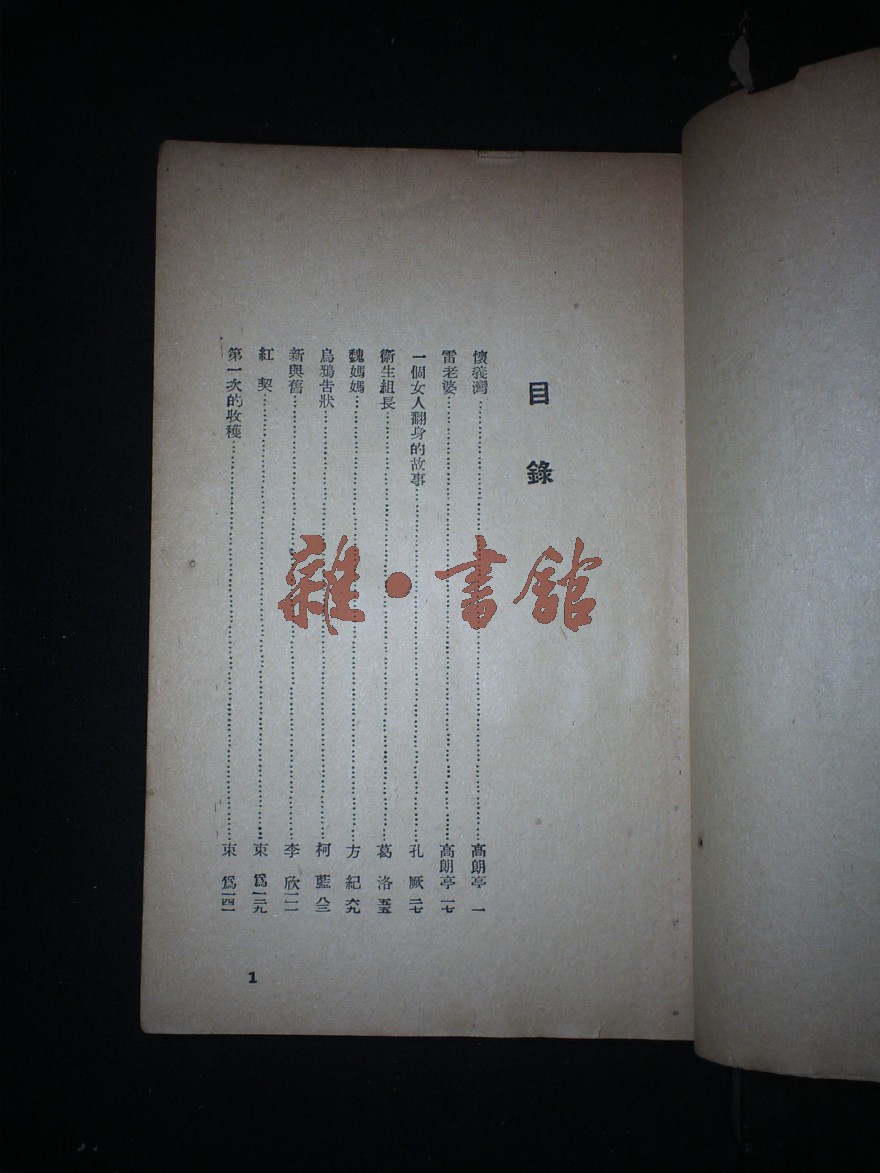 目錄
懷義灣 高朗亭 一
雷老婆 高朗亭 一七
一個女人翻身的故事 孔厥 二七
衛生組長 葛洛 五五
魏媽媽 方紀 六九
烏鴉告狀 柯藍 八三
新與舊 李欣 一一一
紅契 束為 一二九
第一次的收穫 束為 一四一
1
雜·書館